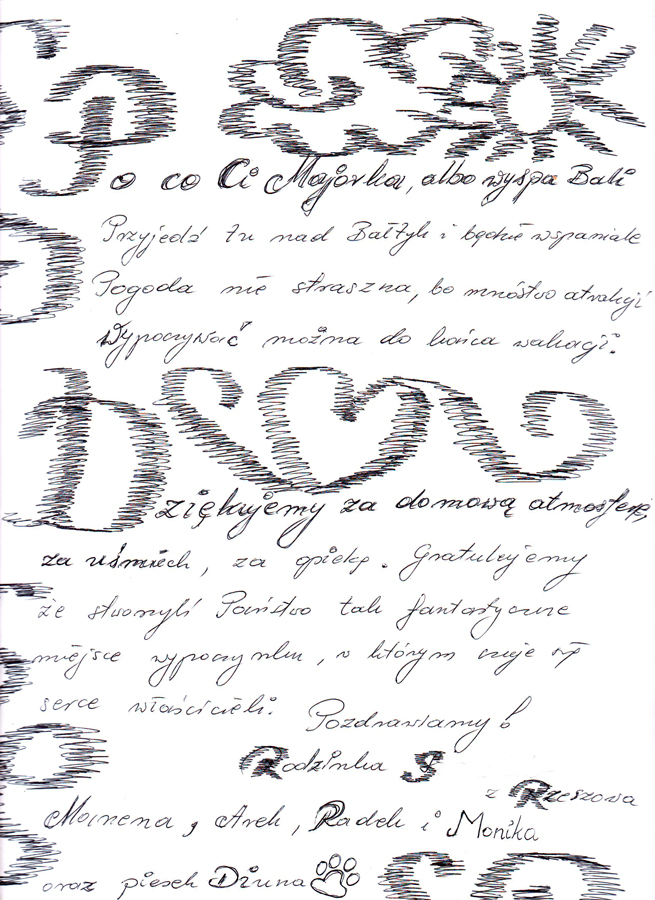 Po co Ci Majorka, albo wyspa Bali
Przyjedź tu nad Bałtyk i będzie wspaniale
Pogoda nie straszna, bo mnóstwo atrakcji
Wypoczywać można do końca wakacji.
Dziękujemy za domową atmosferę,
za uśmiech, za opiekę. Gratulujemy
że stworzyli Państwo tak fantastyczne
miejsce wypoczynku, w którym czuje się
serce właścicieli. Pozdrawiamy!
Rodzinka S
z Rzeszowa
Marzena, Arek, Radek i Monika
oraz piesek Diuna